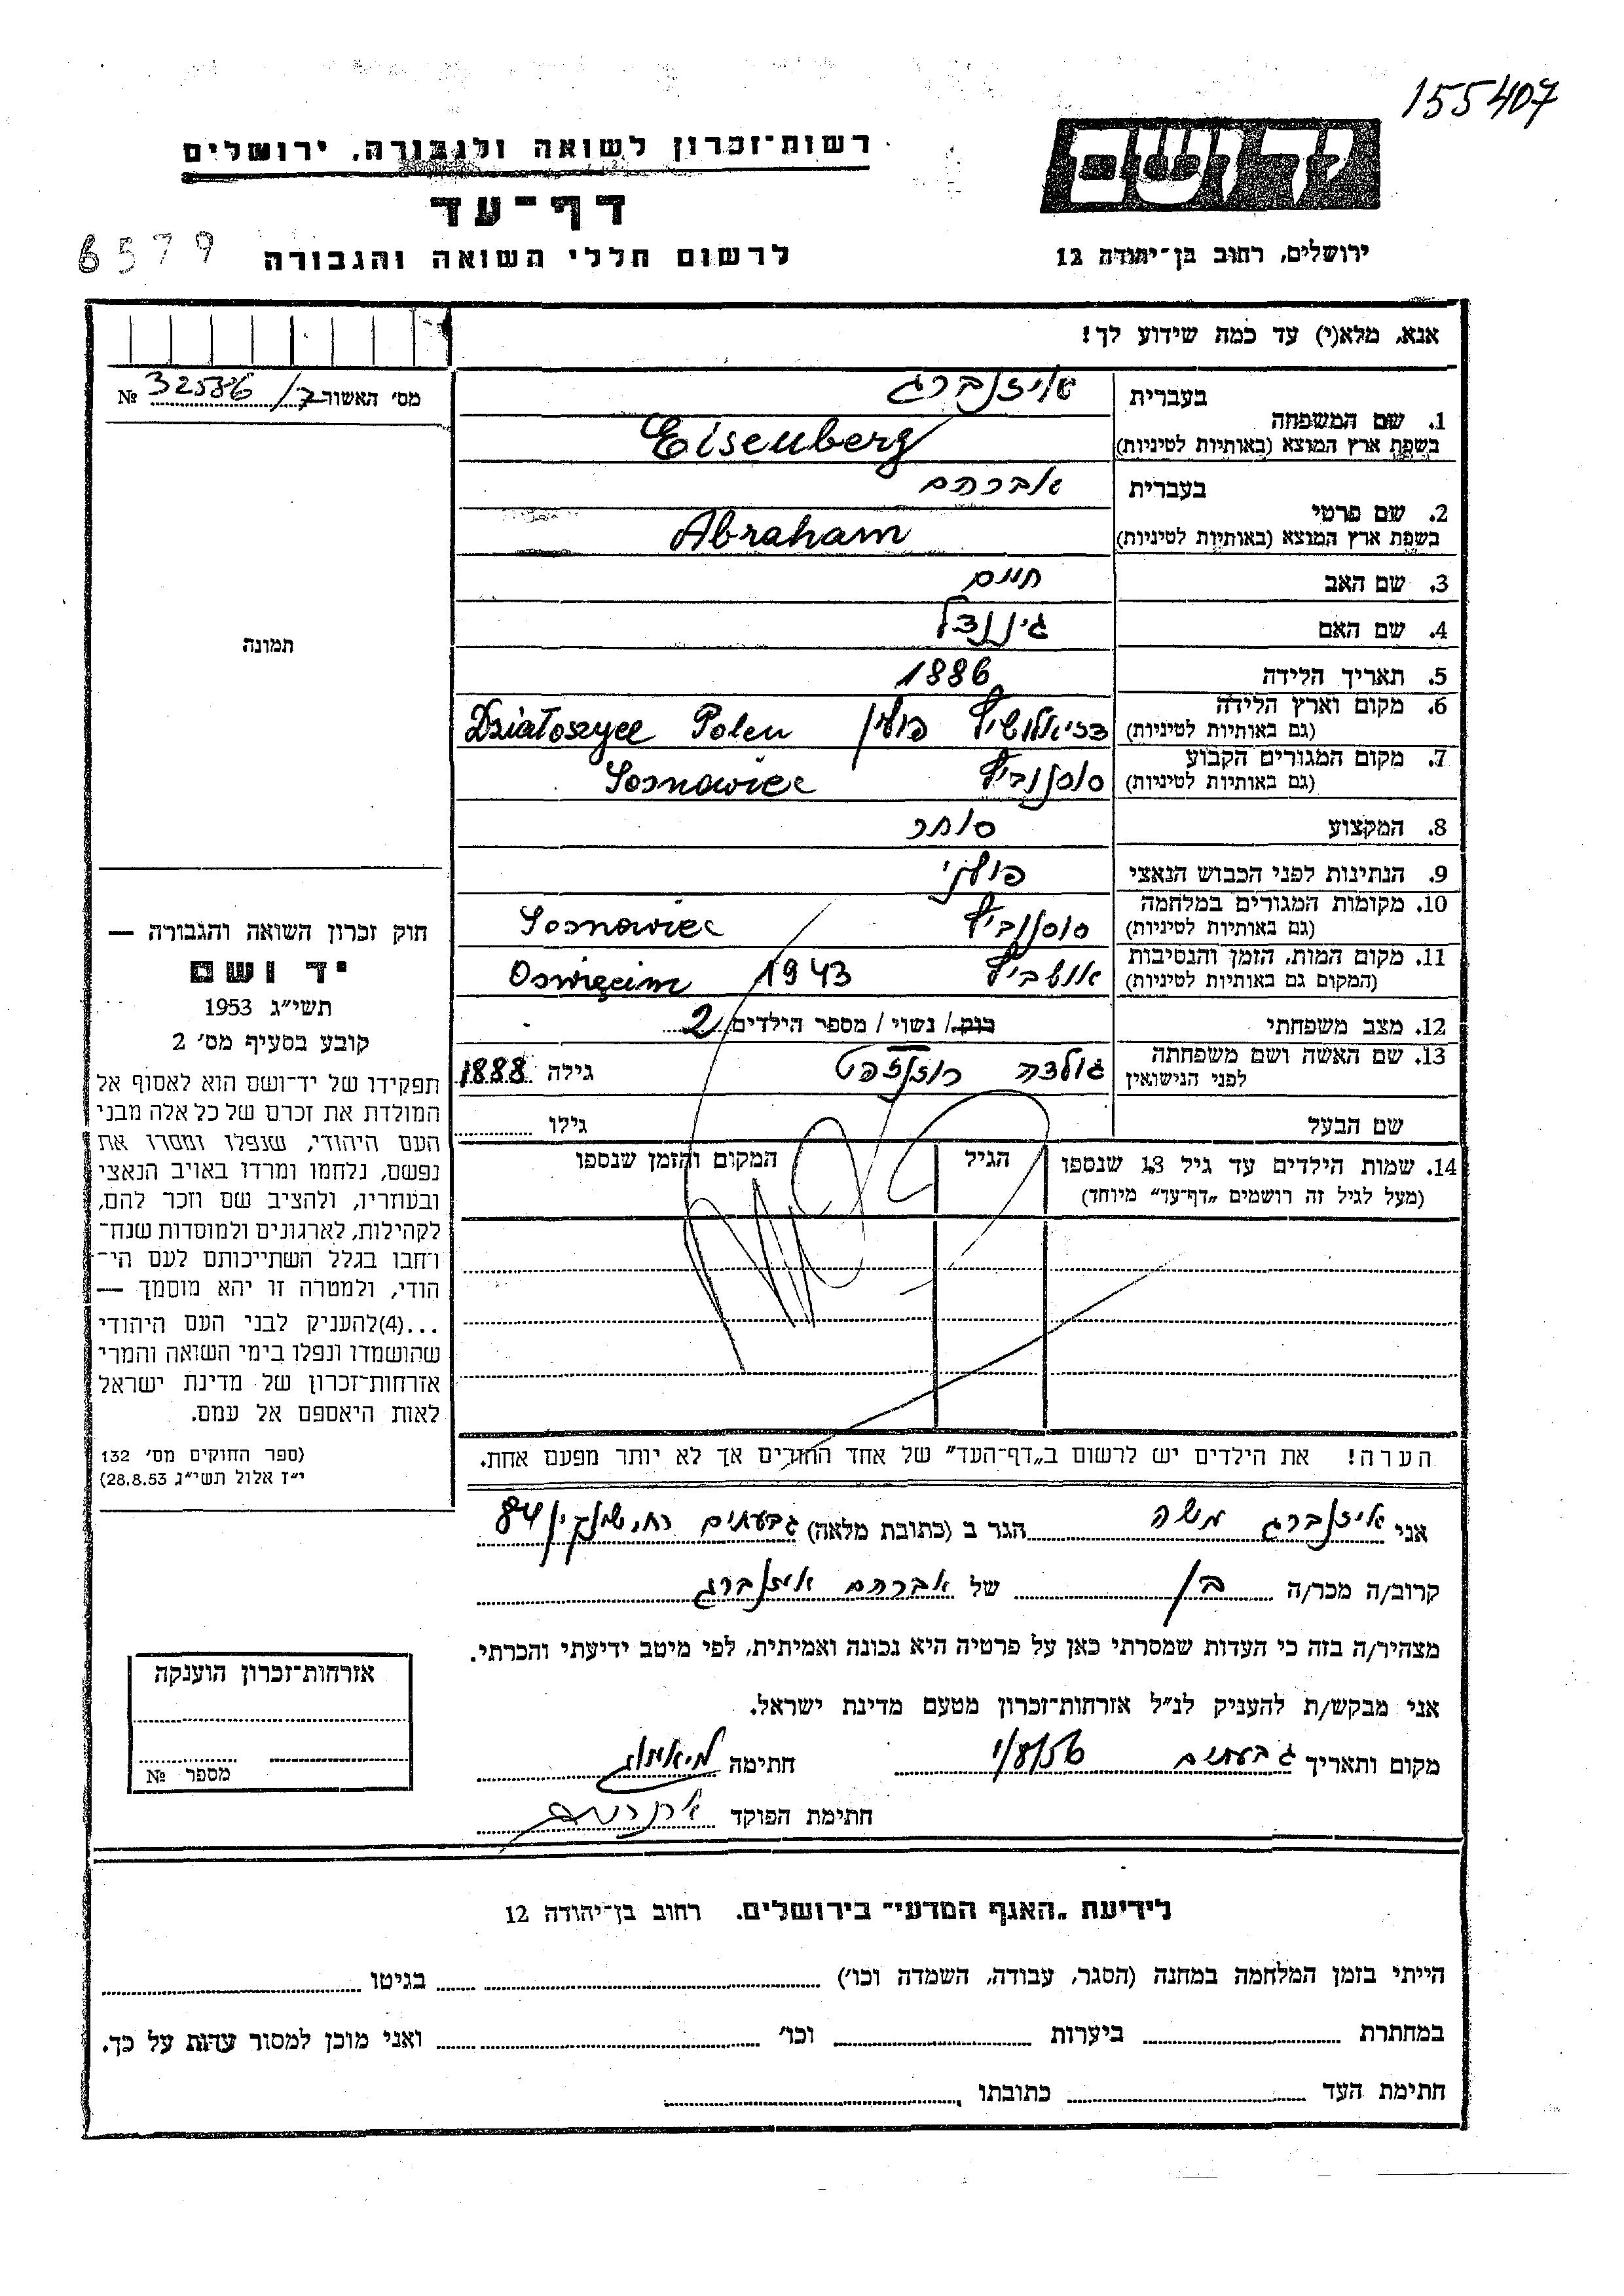 155407
יד ושם
רשות-זכרון לשואה ולגבורה, ירושלים
דף-עד
ירושלים, רחוב בן-יהודה 12
לרשום חללי השואה והגבורה
6579
אנא, מלא(י) עד כמה שידוע לך!
מס׳ האשור 32586/7 №
1. שם המשפחה
בעברית
איזנברג
בשפת ארץ המוצא (באותיות לטיניות)
Eisenberg
2. שם פרטי
בעברית
אברהם
בשפת ארץ המוצא (באותיות לטיניות)
Abraham
3. שם האב
חיים
4. שם האם
5. תאריך הלידה
1886
6. מקום וארץ הלידה
(גם באותיות לטיניות)
פולין Działoszyce Polen
7. מקום המגורים הקבוע
(גם באותיות לטיניות)
סוסנוביץ Sosnowiec
8. המקצוע
סוחר
9. הנתינות לפני הכבוש הנאצי
פולני
10. מקומות המגורים במלחמה
(גם באותיות לטיניות)
סוסנוביץ Sosnowiec
11. מקום המות, הזמן והנסיבות
(המקום גם באותיות לטיניות)
אושביץ 1943 Oswięcim
12. מצב משפחתי
רוק / נשוי / מספר הילדים 2
13. שם האשה ושם משפחתה
לפני הנישואין
גולדה גילה 1888
שם הבעל
גילו
14. שמות הילדים עד גיל 13 שנספו
(מעל לגיל זה רושמים „דף-עד״ מיוחד)
הגיל
המקום והזמן שנספו
הערה! את הילדים יש לרשום ב„דף-העד״ של אחד ההורים אך לא יותר מפעם אחת.
תמונה
חוק זכרון השואה והגבורה —
יד ושם
תשי״ג 1953
קובע בסעיף מס׳ 2
תפקידו של יד-ושם הוא לאסוף אל
המולדת את זכרם של כל אלה מבני
העם היהודי, שנפלו ומסרו את
נפשם, נלחמו ומרדו באויב הנאצי
ובעוזריו, ולהציב שם וזכר להם,
לקהילות, לארגונים ולמוסדות שנח־
רחבו בגלל השתייכותם לעם הי־
הודי, ולמטרה זו יהא מוסמך —
...(4)להעניק לבני העם היהודי
שהושמדו ונפלו בימי השואה והמרי
אזרחות-זכרון של מדינת ישראל
לאות היאספם אל עמם.
(ספר החוקים מס׳ 132
י״ז אלול תשי״ג 28.8.53)
אני איזנברג משה הגר ב (כתובת מלאה) גבעתים רח׳ שינקין 84
קרוב/ה מכר/ה בן של אברהם איזנברג
מצהיר/ה בזה כי העדות שמסרתי כאן על פרטיה היא נכונה ואמיתית, לפי מיטב ידיעתי והכרתי.
אני מבקש/ת להעניק לנ״ל אזרחות-זכרון מטעם מדינת ישראל.
מקום ותאריך גבעתים חתימה
חתימת הפוקד
אזרחות-זכרון הוענקה
מספר №
לידיעת „האגף המדעי״ בירושלים. רחוב בן-יהודה 12
הייתי בזמן המלחמה במחנה (הסגר, עבודה, השמדה וכו׳) בגיטו
במחתרת ביערות וכו׳ ואני מוכן למסור עדות על כך.
חתימת העד כתובתו